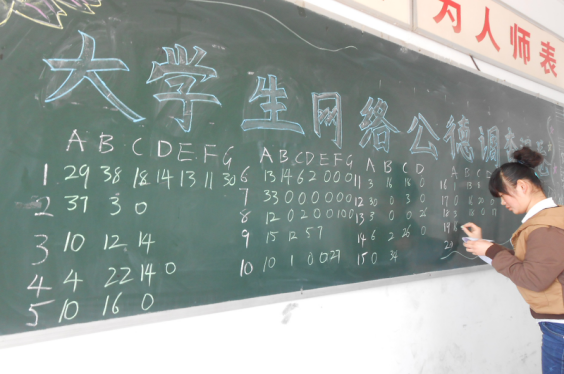 为人师表
大学生网络公德调查
A B C D E F G
1 29 38 18 14 13 11 30
2 37 3 0
3 10 12 14
4 4 22 14 0
5 10 16 0
A B C D E F G
6 13 14 6 2 0 0 0
7 33 0 0 0 0 0 0
8 12 0 2 0 0 10 0
9 15 12 5 7
10 10 1 0 0 27
A B C D
11 3 16 18 0
12 30 0 3 0
13 3 0 0 26
14 6 2 26 0
15 0 34
A B C D
16 1
17 0
18 3
19